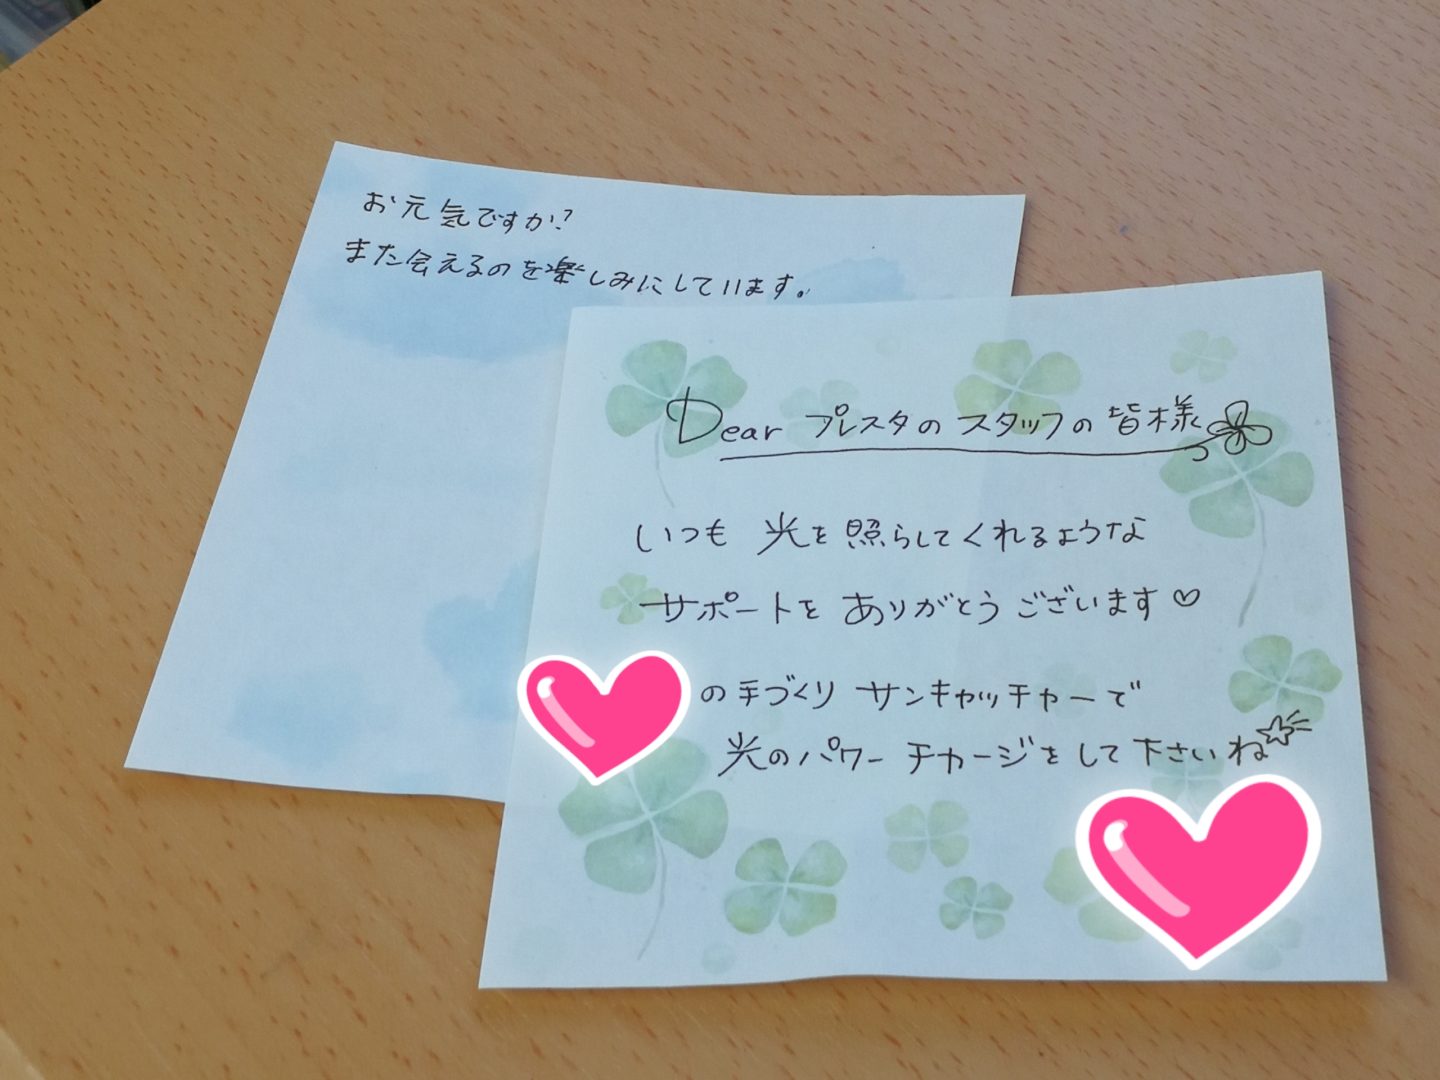 お元気ですか?
また会えるのを楽しみにしています。
Dear プレスタの スタッフの 皆様
いつも 光を 照らしてくれるような
サポートを ありがとう ございます♡
の手づくり サンキャッチャーで
光のパワー チャージをして下さいね☆